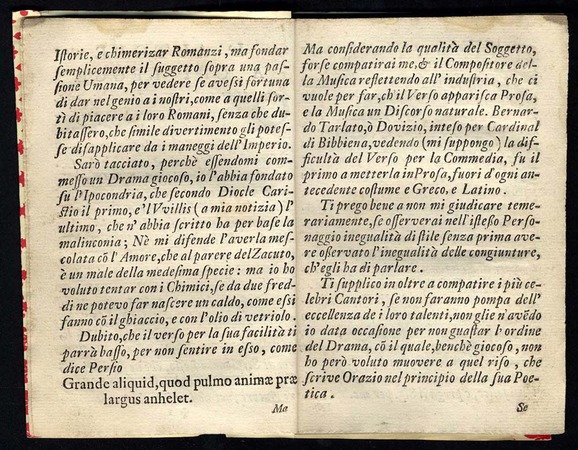 Istorie, e chimerizar Romanzi, ma fondar
semplicemente il suggetto sopra una pas-
sione Umana, per vedere se avessi fortuna
di dar nel genio a i nostri, come a quelli sor-
tì di piacere a i loro Romani, senza che du-
bitassero, che simile divertimento gli potes-
se disapplicare da i maneggi dell'Imperio.
Sarò tacciato, perchè essendomi com-
messo un Drama giocoso, io l'abbia fondato
su l'Ipocondria, che secondo Diocle Cari-
stio il primo, e'l Vvillis (a mia notizia) l'
ultimo, che n'abbia scritto ha per base la
malinconia; Nè mi difende l'averla mes-
colata cõ l'Amore, che al parere del Zacuto,
è un male della medesima specie: ma io ho
voluto tentar con i Chimici, se da due fred-
di ne potevo far nascere un caldo, come essi
fanno cõ il ghiaccio, e con l'olio di vetriolo.
Dubito, che il verso per la sua facilità ti
parrà basso, per non sentire in esso, come
dice Persio
Grande aliquid, quod pulmo animæ præ
largus anhelet.
Ma
Ma considerando la qualità del Soggetto,
forse compatirai me, & il Compositore del-
la Musica reflettendo all'industria, che ci
vuole per far, ch'il Verso apparisca Prosa,
e la Musica un Discorso naturale. Bernar-
do Tarlato, ò Dovizio, inteso per Cardinal
di Bibbiena, vedendo (mi suppongo) la dif-
ficultà del Verso per la Commedia, fu il
primo a metterla in Prosa, fuori d'ogni an-
tecedente costume e Greco, e Latino.
Ti prego bene a non mi giudicare teme-
rariamente, se osserverai nell'istesso Perso-
naggio inegualità di stile senza prima ave-
re osservato l'inegualità delle congiunture,
ch'egli ha di parlare.
Ti supplico in oltre a compatire i più ce-
lebri Cantori, se non faranno pompa dell'
eccellenza de i loro talenti, non glie n'avẽdo
io data occasione per non guastar l'ordine
del Drama, cõ il quale, benchè giocoso, non
ho però voluto muovere a quel riso, che
scrive Orazio nel principio della sua Poe-
tica.
Se